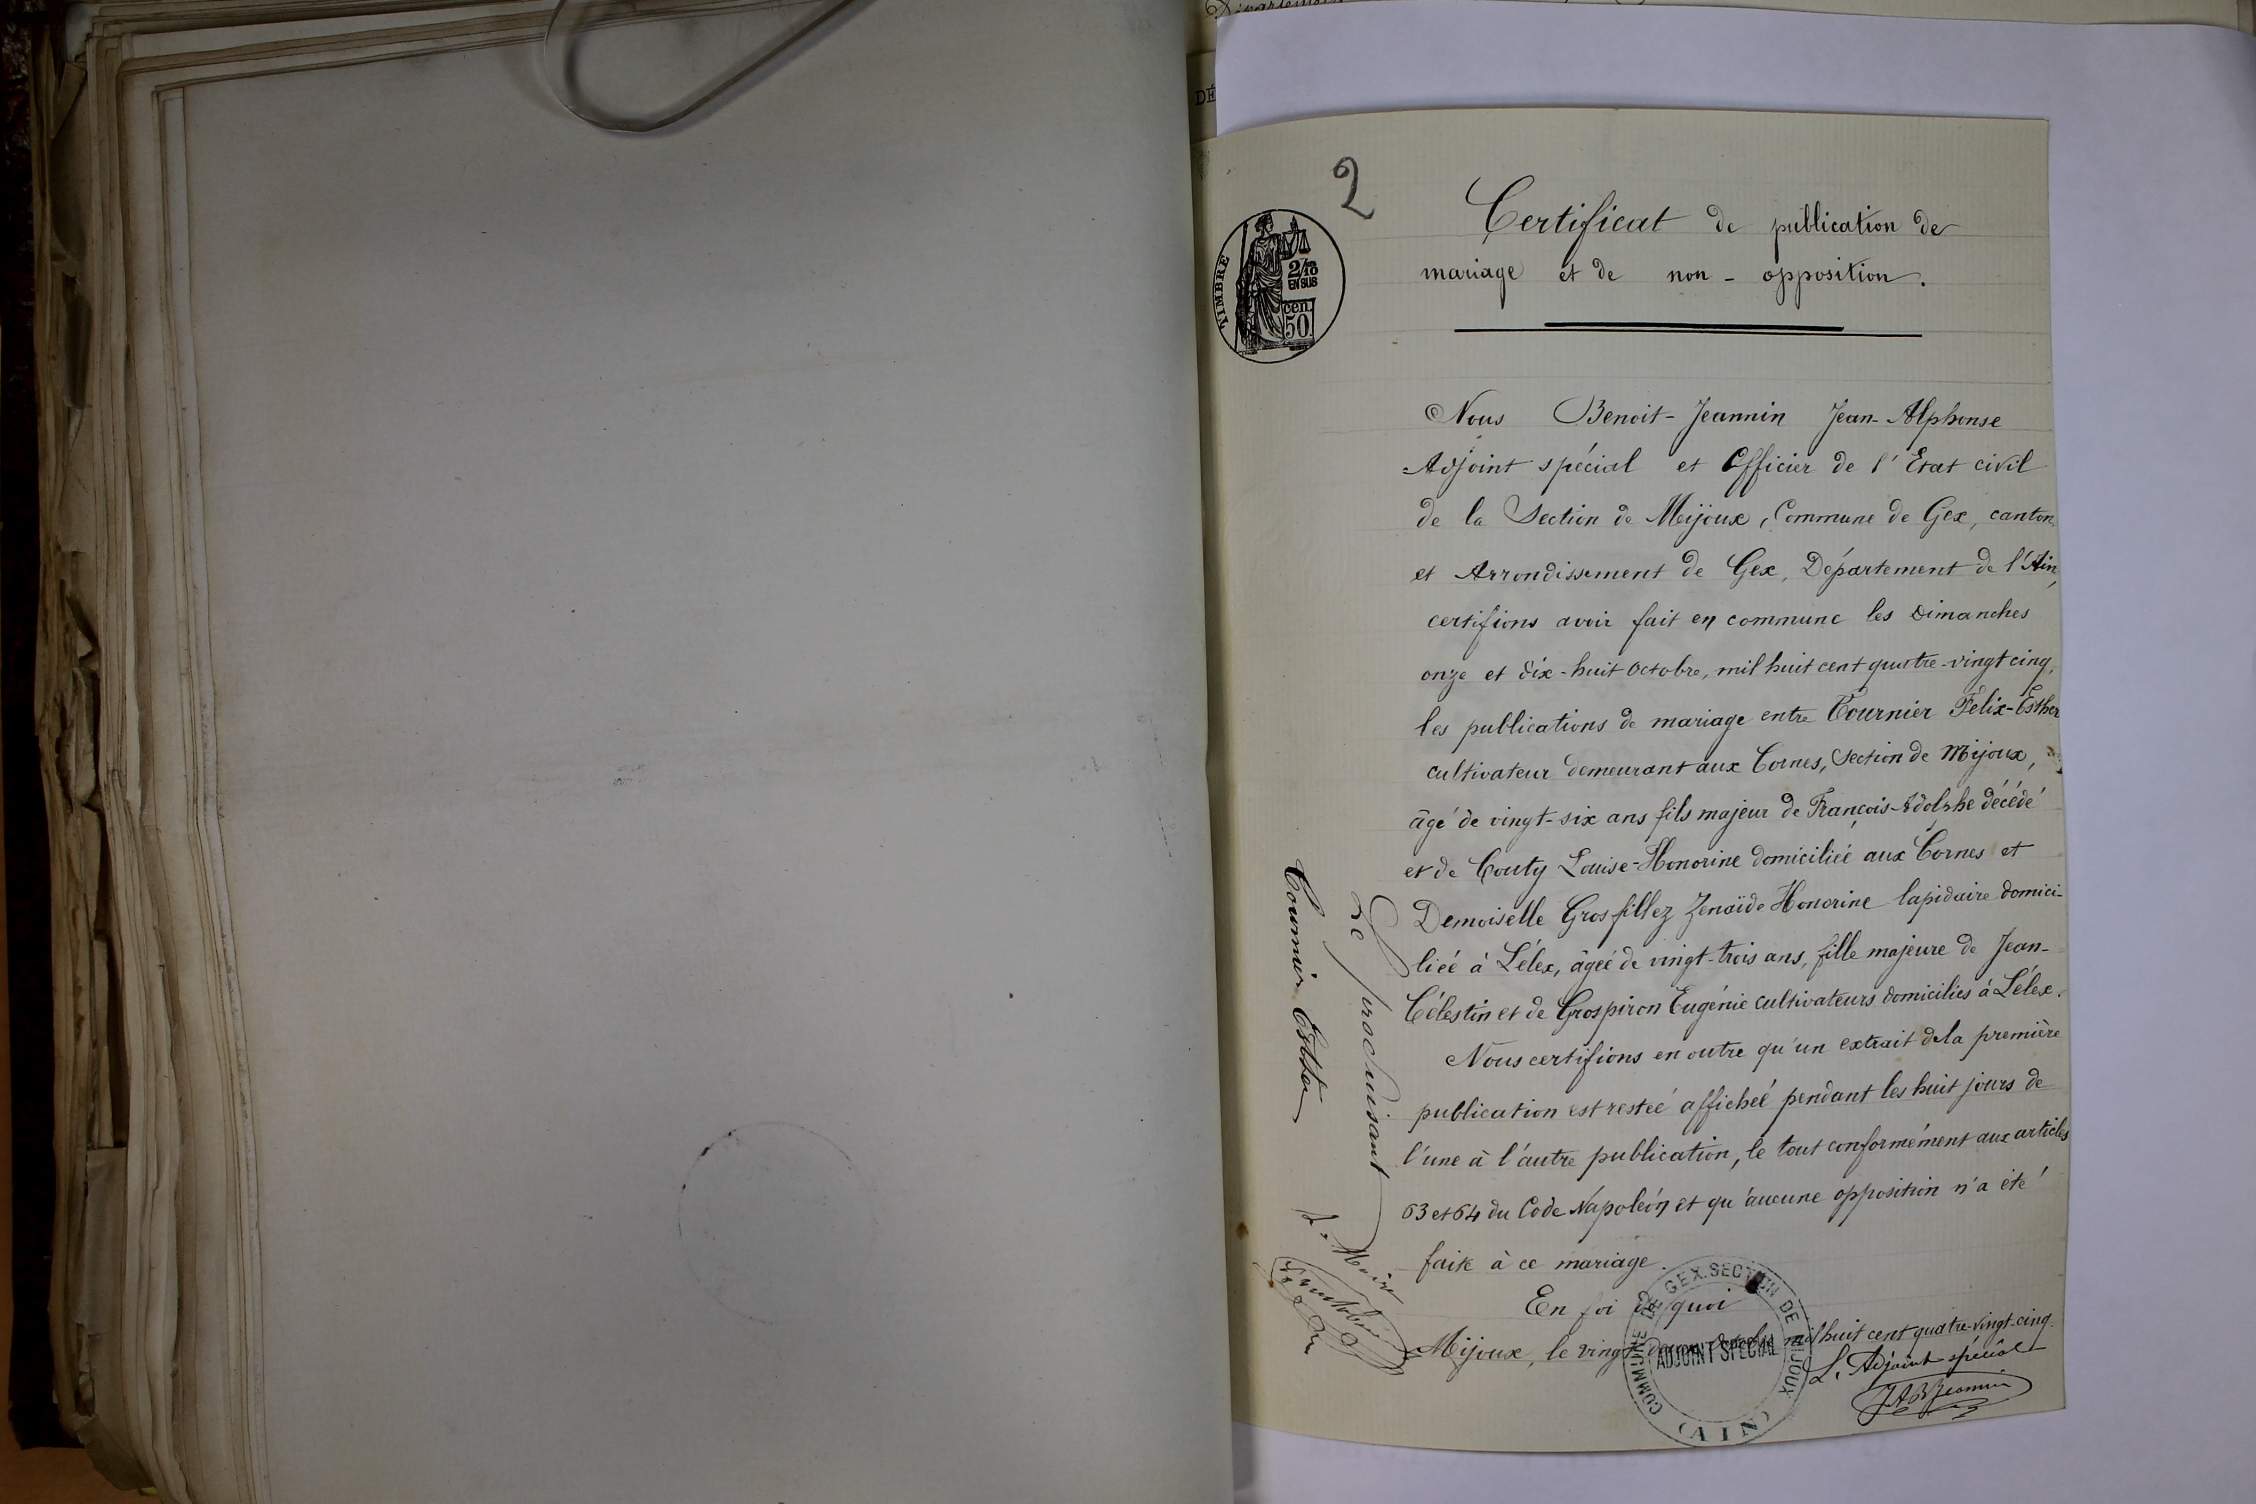 2
TIMBRE
2/10
EN SUS
50 cen.
Certificat de publication de
mariage et de non - opposition.
Nous Benoit-Jeannin Jean-Alphonse
Adjoint spécial et Officier de l'Etat civil
de la Section de Mijoux, Commune de Gex, canton
et Arrondissement de Gex, Département de l'Ain,
certifions avoir fait en commune les Dimanches
onze et dix-huit Octobre, mil huit cent quatre-vingt cinq,
les publications de mariage entre Tournier Felix-Esther
cultivateur demeurant aux Cornes, Section de Mijoux,
âgé de vingt-six ans fils majeur de François-Adolphe décédé
et de Couty Louise-Honorine domiciliée aux Cornes et
Demoiselle Grosfillez Zenaïde Honorine lapidaire domici-
liée à Lélex, âgée de vingt-trois ans, fille majeure de Jean-
Célestin et de Grospiron Eugénie cultivateurs domiciliés à Lélex.
Nous certifions en outre qu'un extrait de la première
publication est restée affichée pendant les huit jours de
l'une à l'autre publication, le tout conformément aux articles
63 et 64 du Code Napoléon et qu'aucune opposition n'a été
faite à ce mariage.
En foi de quoi
Mijoux, le vingt mil huit cent quatre-vingt-cinq.
L'Adjoint spécial
JAB Jeannin
COMMUNE DE GEX. SECTION DE MIJOUX
ADJOINT SPECIAL
(AIN)
Le produisant
Tournier Esther
L. Maire